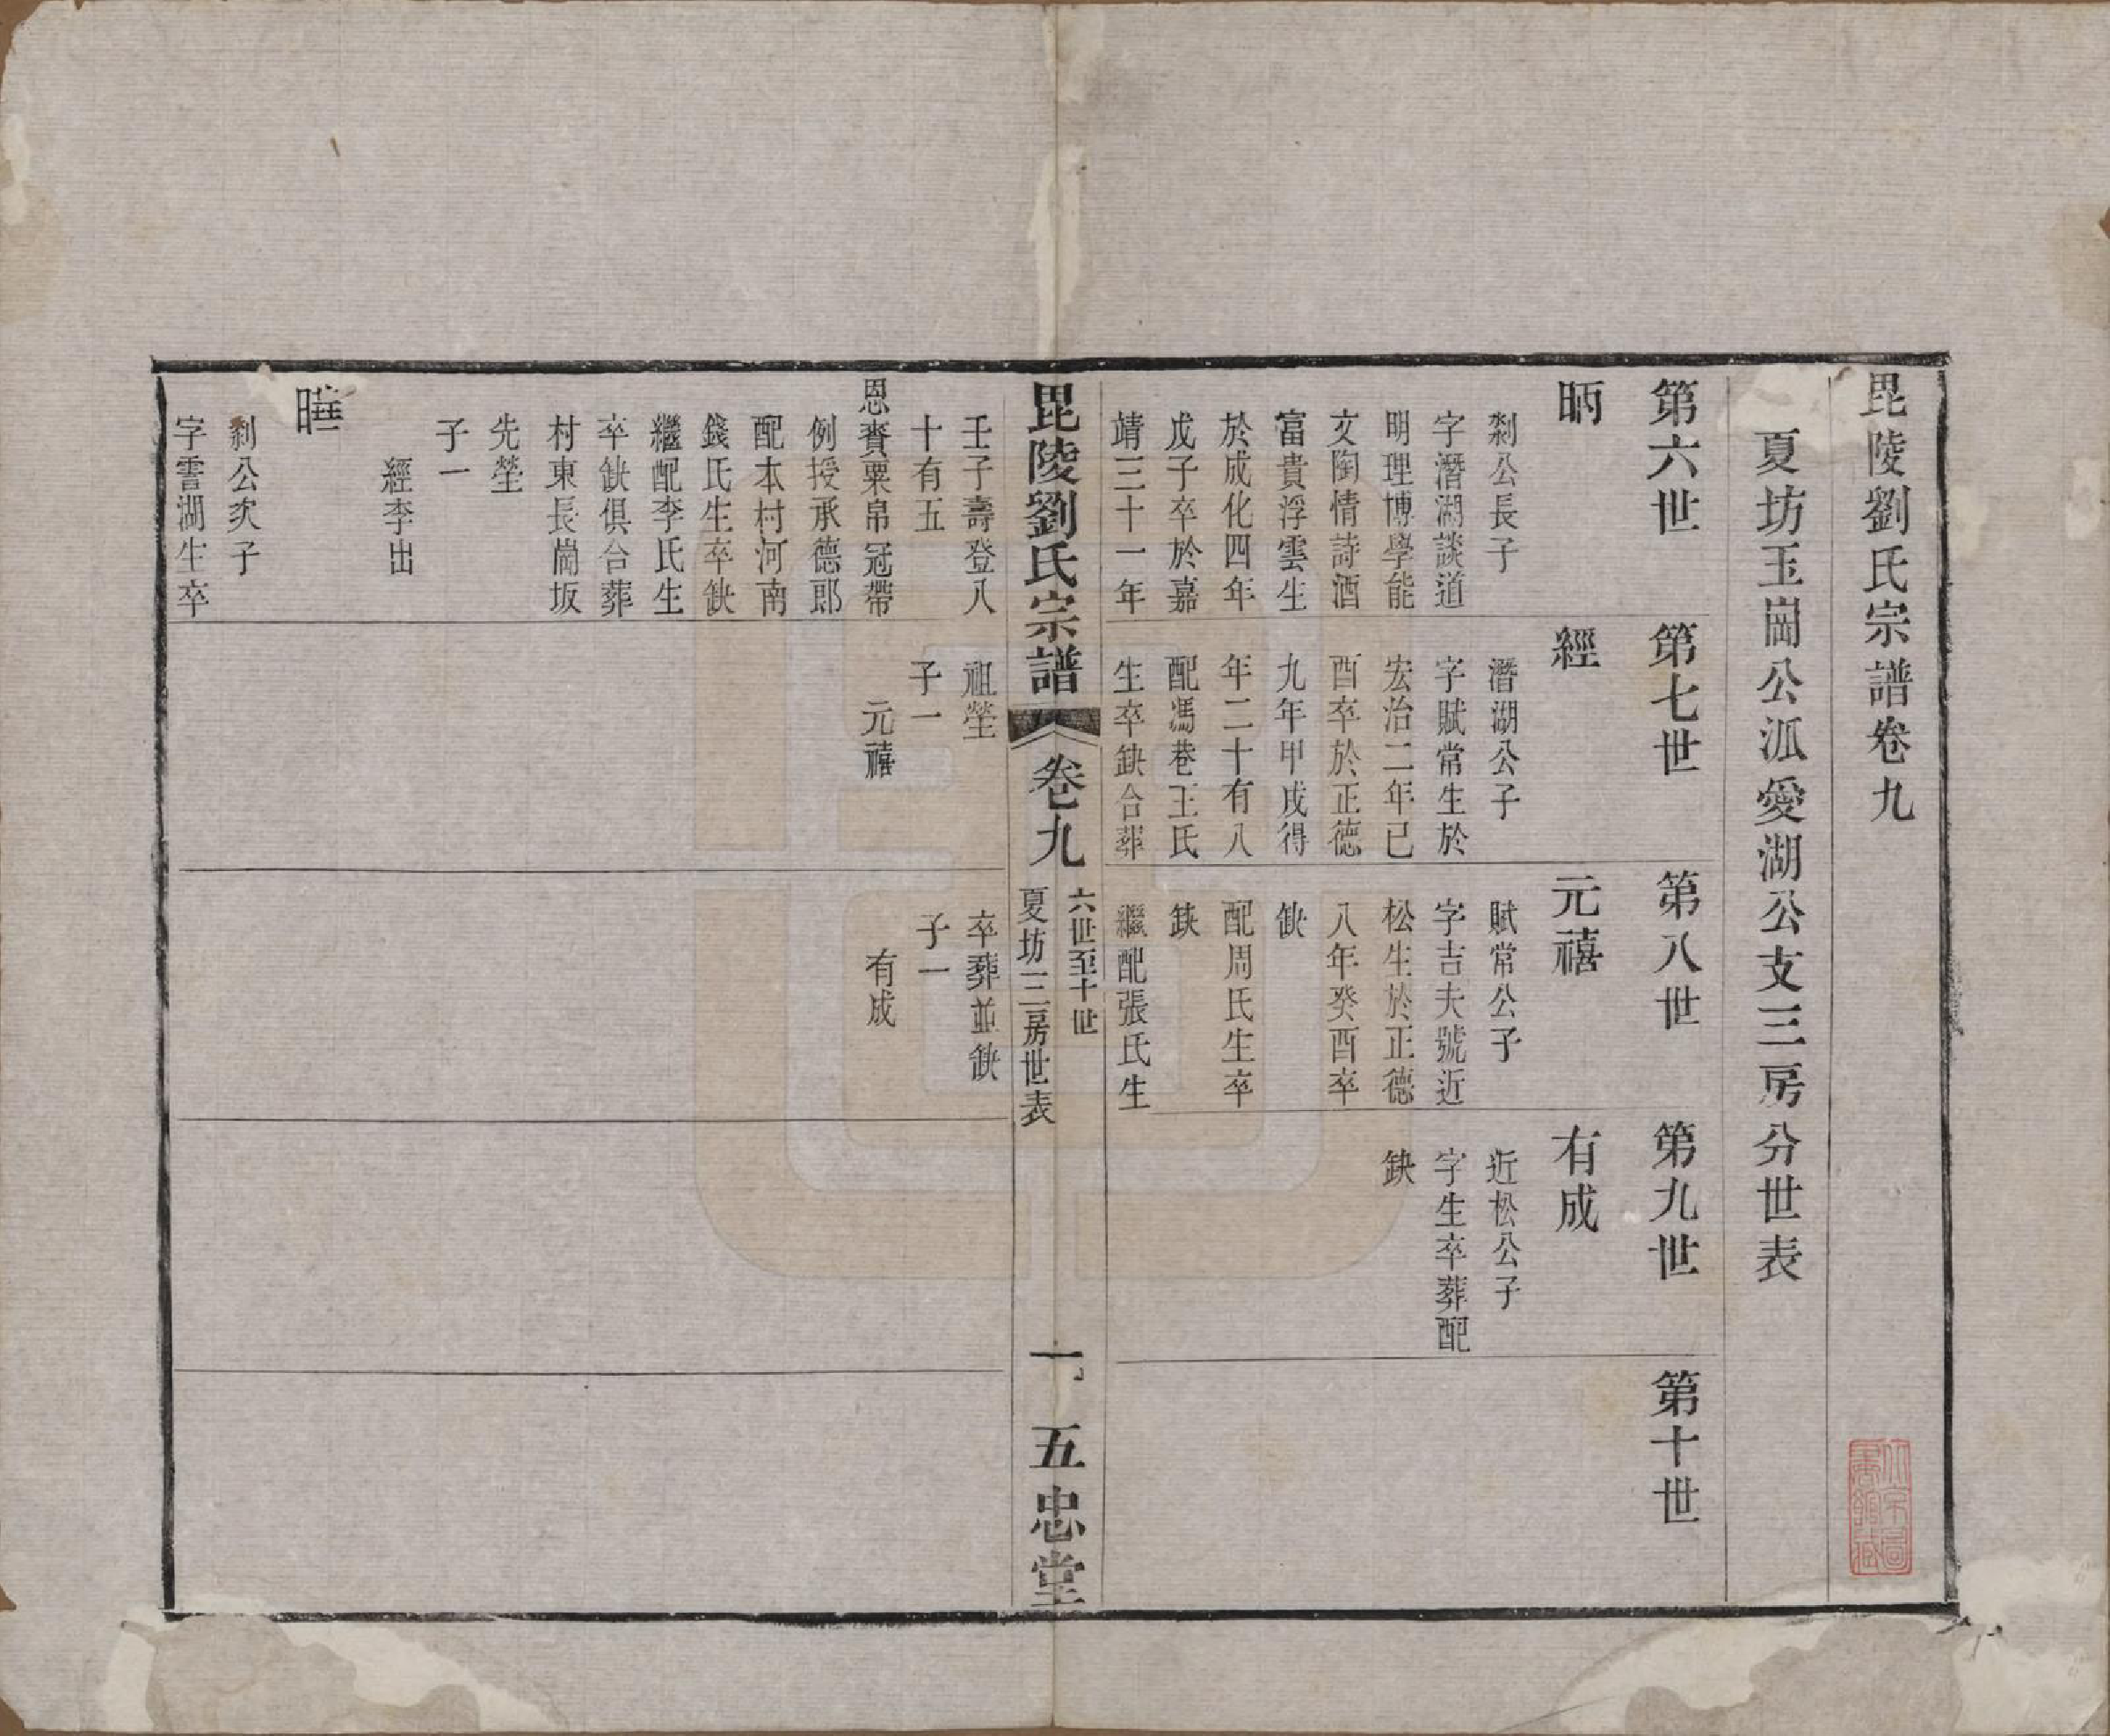 毘陵劉氏宗譜卷九
夏坊玉崗公派愛湖公支三房分世表
第六世
第七世
第八世
第九世
第十世
昞
經
元禧
有成
剡公長子
字潛湖談道
明理博學能
文陶情詩酒
富貴浮雲生
於成化四年
戊子卒於嘉
靖三十一年
潛湖公子
字賦常生於
宏治二年已
酉卒於正德
九年甲戌得
年二十有八
配馮巷王氏
生卒缺合葬
賦常公子
字吉夫號近
松生於正德
八年癸酉卒
缺
配周氏生卒
缺
繼配張氏生
近松公子
字生卒葬配
缺
毘陵劉氏宗譜
卷九
六世至十世
夏坊三房世表
一
五忠堂
壬子壽登八
十有五
恩賚粟帛冠帶
例授承德郎
配本村河南
錢氏生卒缺
繼配李氏生
卒缺俱合葬
村東長崗坂
先塋
子一
經李出
祖塋
子一
元禧
卒葬並缺
子一
有成
剡公次子
字雲湖生卒